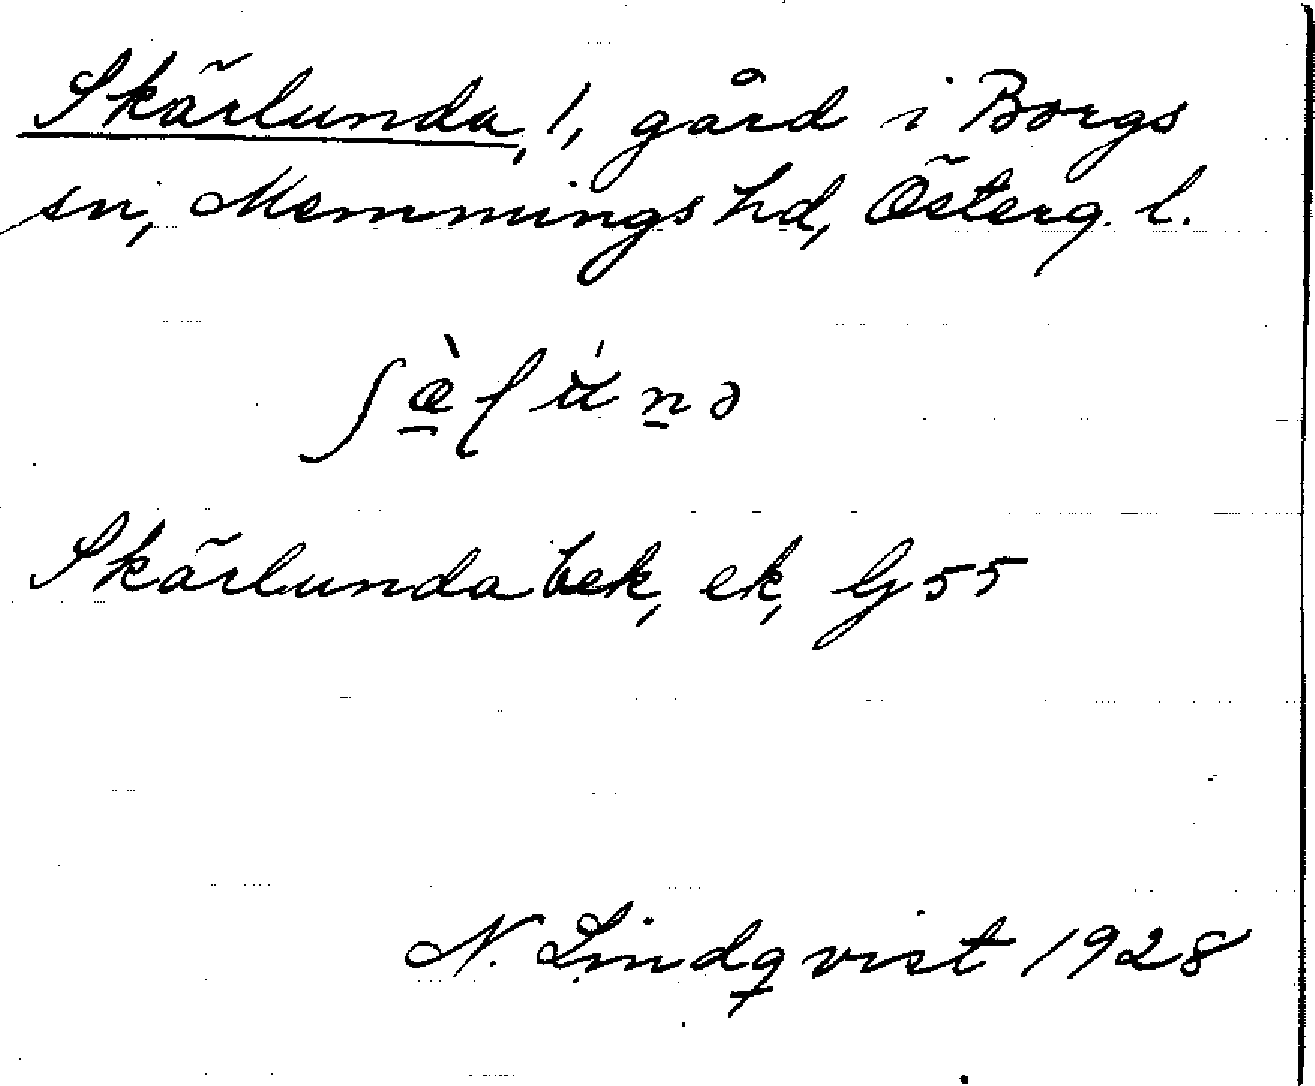 Skärlunda, 1, gård i Borgs
sn, Memmings hd, Österg. l.
Skärlunda bek, ek, G 55
N. Lindqvist 1928